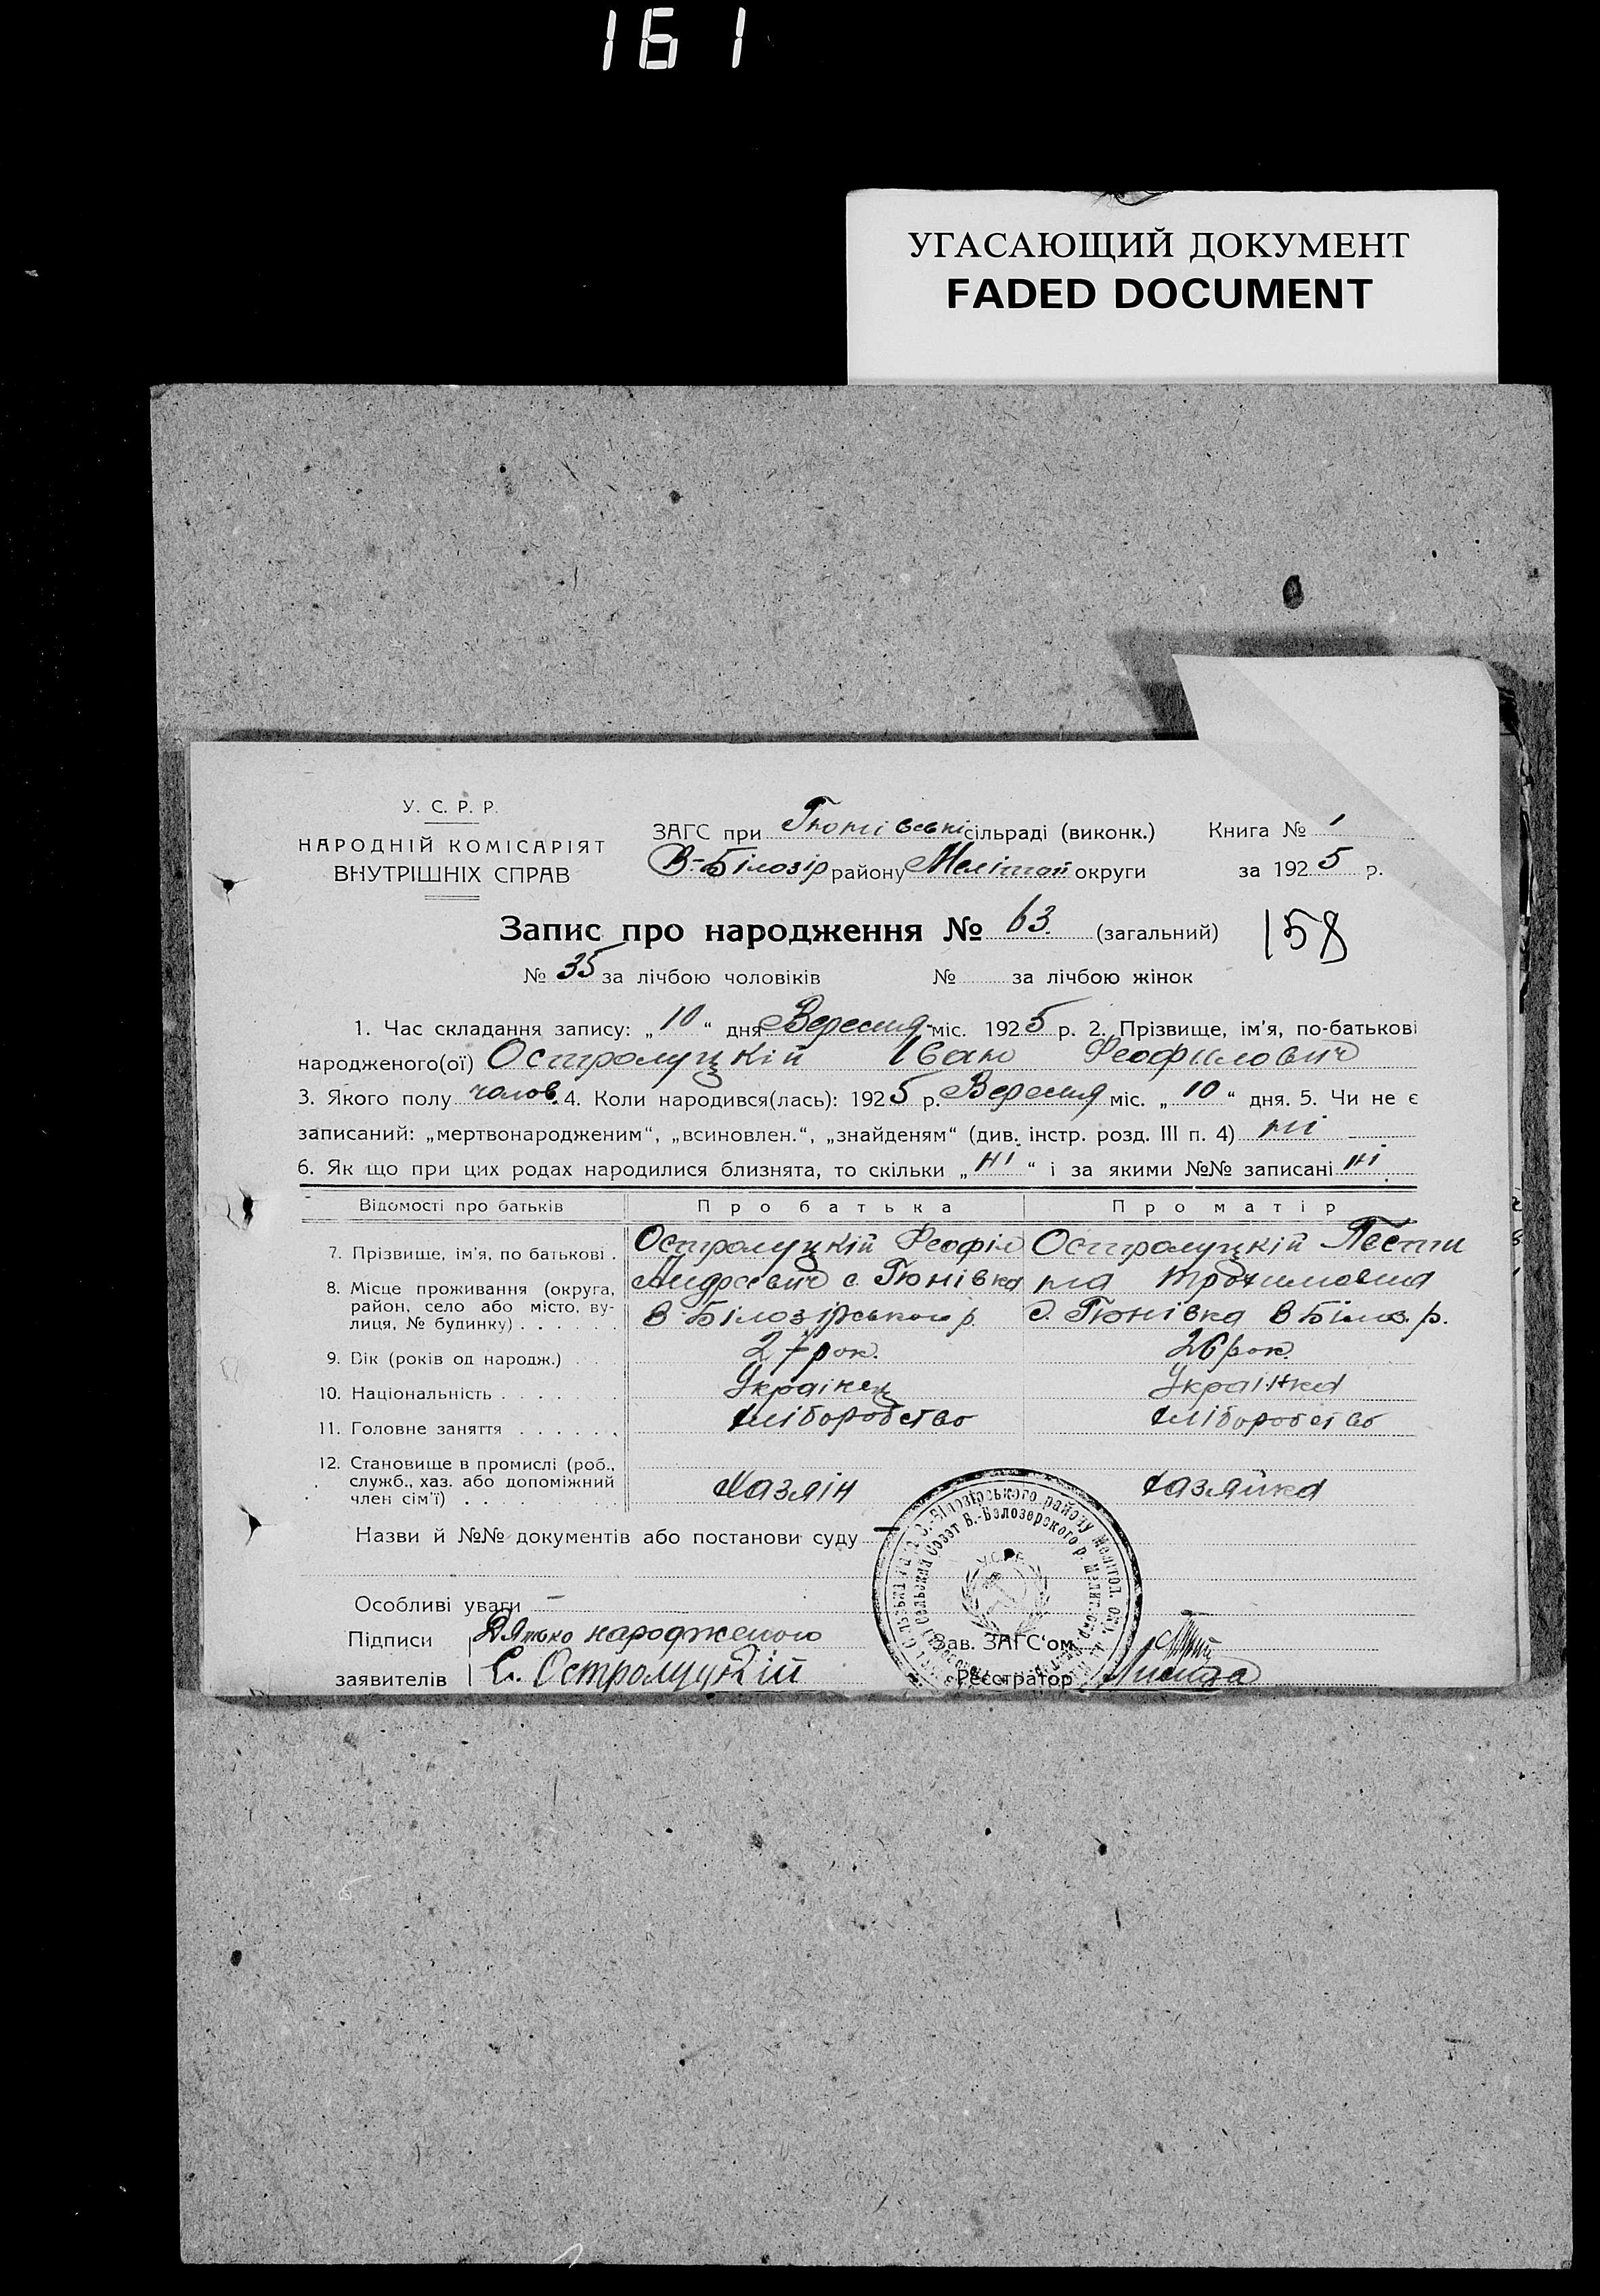 161
УГАСАЮЩИЙ ДОКУМЕНТ
FADED DOCUMENT
У. С. Р. Р.
НАРОДНІЙ КОМІСАРІЯТ
ВНУТРІШНІХ СПРАВ
ЗАГС при сільраді (виконк.) Книга № 1
В-Білозір району Меліт округи за 1925 р.
Запис про народження № 63. (загальний) 158
№ 35 за лічбою чоловіків № за лічбою жінок
1. Час складання запису: „10“ дня Вересня міс. 1925 р. 2. Прізвище, ім'я, по-батькові
народженого(ої) Остролуцкій Іван Феофилович
3. Якого полу чолов. 4. Коли народився(лась): 1925 р. Вересня міс. „10“ дня. 5. Чи не є
записаний: „мертвонародженим“, „всиновлен.“, „знайденям“ (див. інстр. розд. III п. 4) ні
6. Як що при цих родах народилися близнята, то скільки „ні“ і за якими №№ записані ні
Відомості про батьків Про батька Про матір
7. Прізвище, ім'я, по батькові . Остролуцкій Феофіл Остролуцкій
8. Місце проживання (округа, Андрєевич с. Гюнівка
район, село або місто, ву- В Білозірського р. с. Гюнівка В Білоз. р.
лиця, № будинку) . . . . . .
9. Вік (років од народж.) . . . 27 рок. 26 рок.
10. Національність . . . . . Українец Українка
11. Головне заняття . . . . . . хліборобство хліборобство
12. Становище в промислі (роб.,
служб., хаз. або допоміжний Хазяін хазяйка
член сім'ї) . . .
Назви й №№ документів або постанови суду —
Особливі уваги —
Підписи Батько народженого Зав. ЗАГС'ом
заявителів Остролуцкій Реєстратор